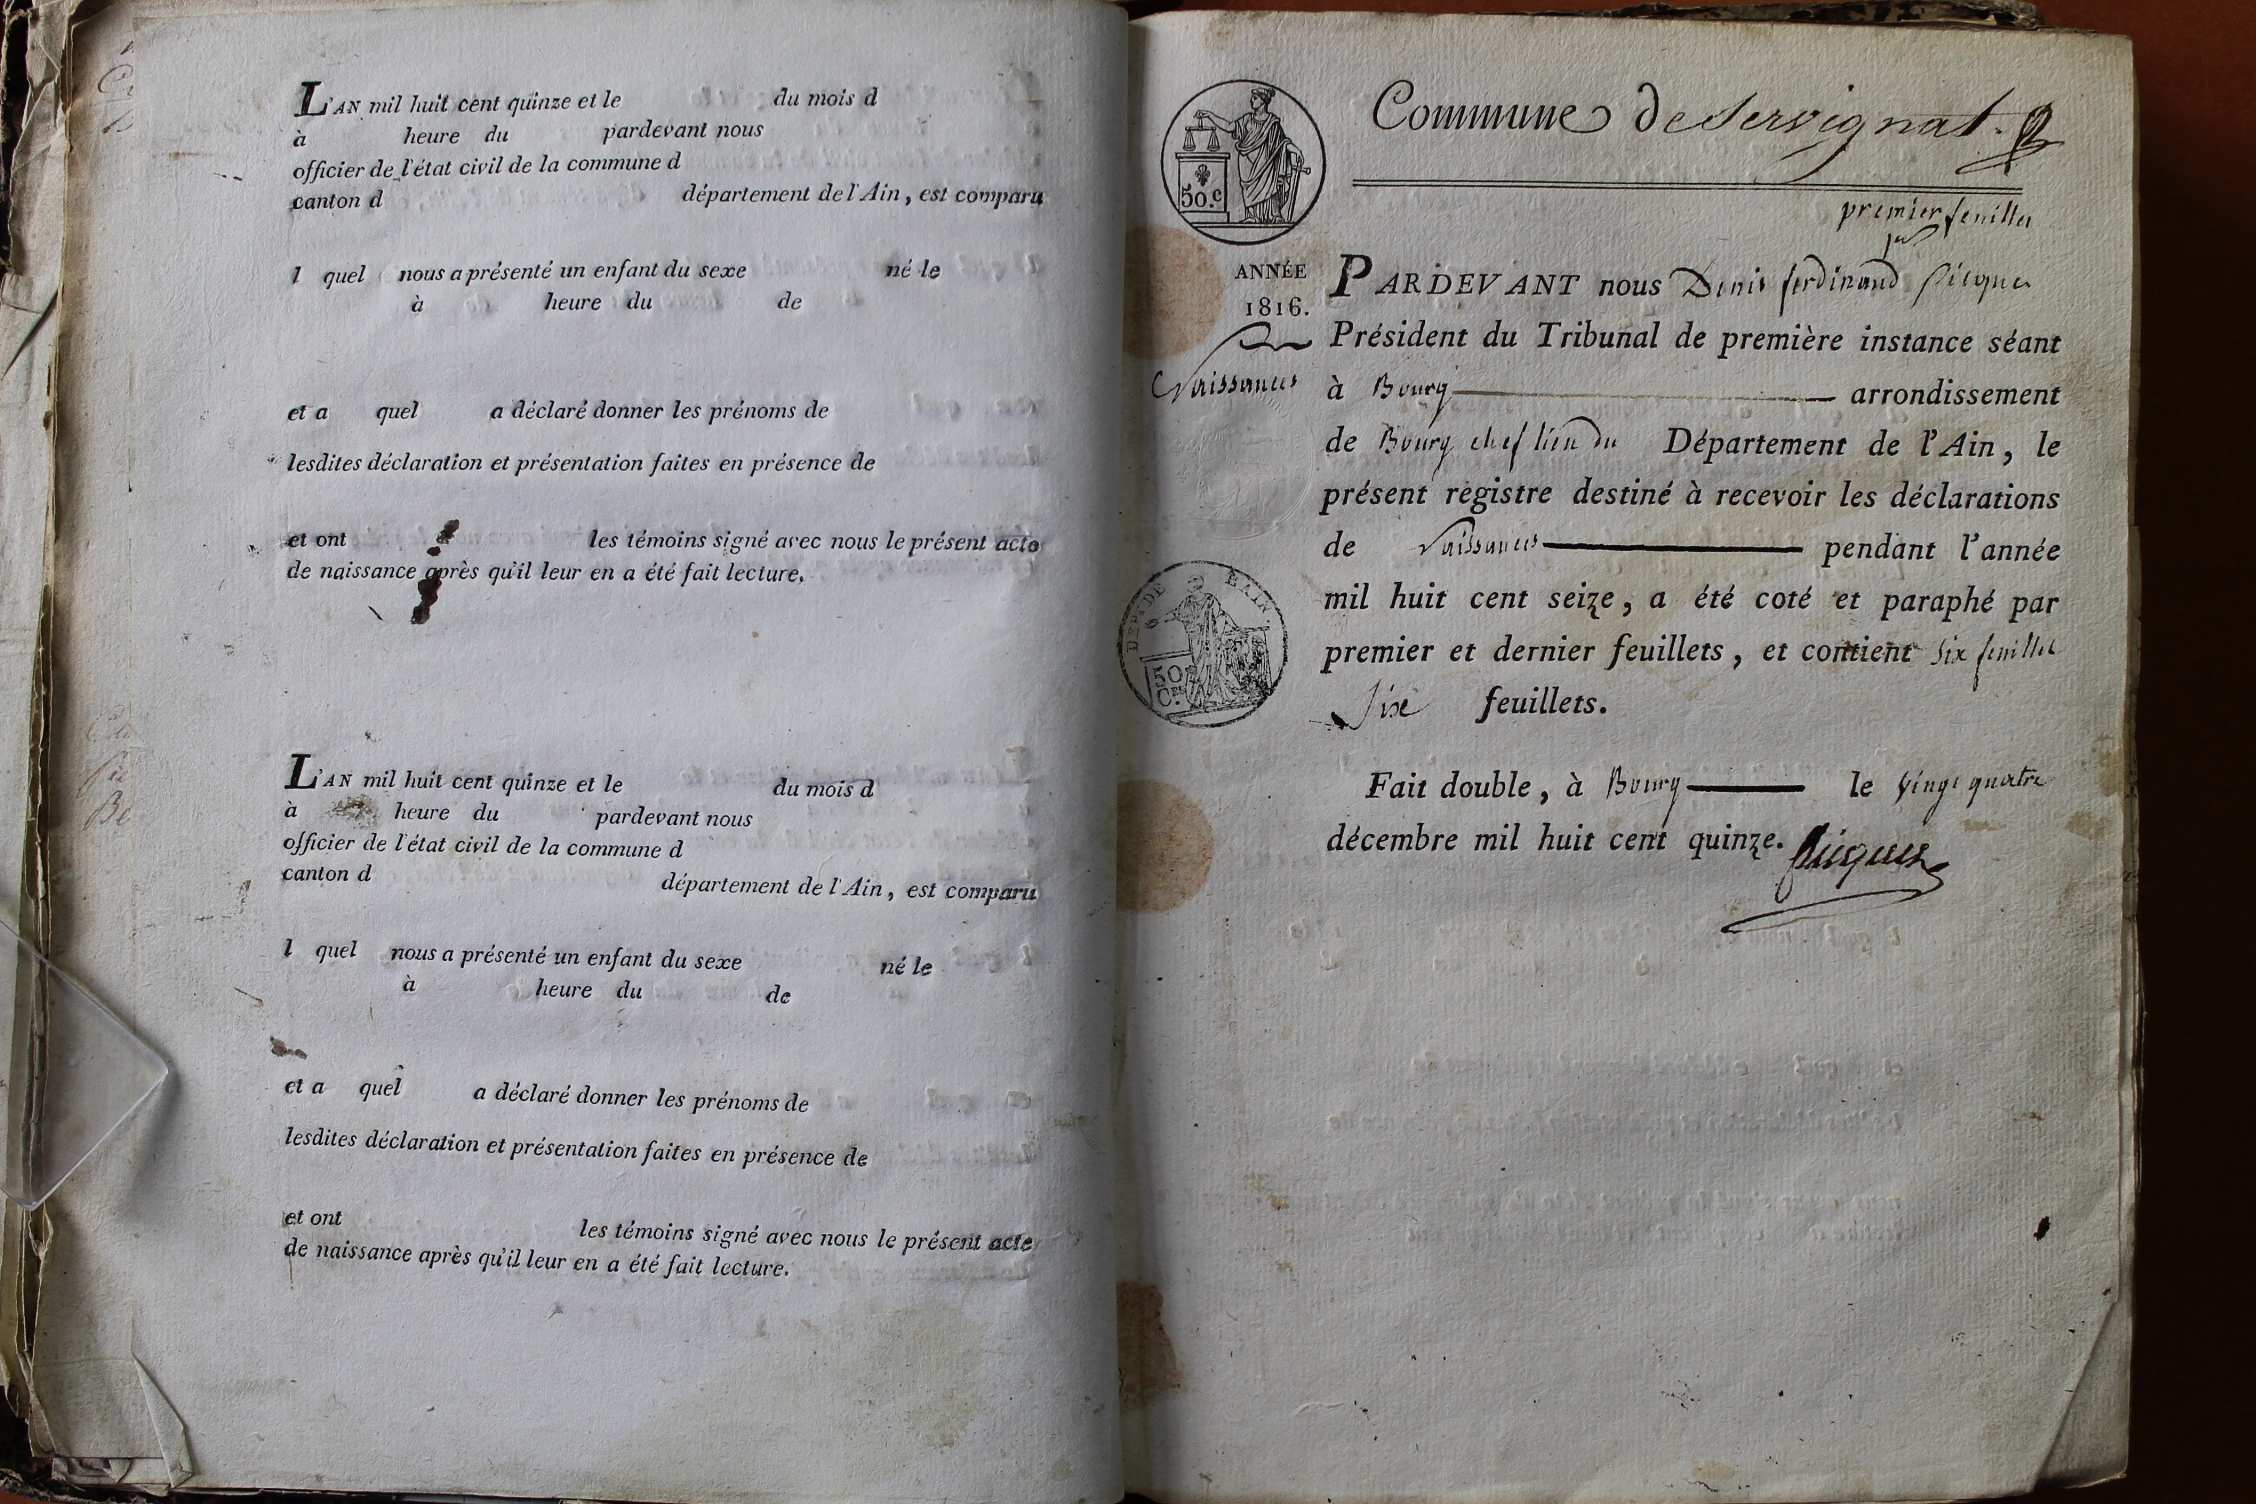 L'AN mil huit cent quinze et le du mois d
à heure du pardevant nous
officier de l'état civil de la commune d
canton d département de l'Ain, est comparu
l quel nous a présenté un enfant du sexe né le
à heure du de
et a quel a déclaré donner les prénoms de
lesdites déclaration et présentation faites en présence de
et ont les témoins signé avec nous le présent acte
de naissance après qu'il leur en a été fait lecture.
L'AN mil huit cent quinze et le du mois d
à heure du pardevant nous
officier de l'état civil de la commune d
canton d département de l'Ain, est comparu
l quel nous a présenté un enfant du sexe né le
à heure du de
et a quel a déclaré donner les prénoms de
lesdites déclaration et présentation faites en présence de
et ont les témoins signé avec nous le présent acte
de naissance après qu'il leur en a été fait lecture.
Commune de Servignat.
50.c
premier feuillet
ANNÉE
1816.
Naissances
DEP.T DE L'AIN
50
C.ES
PARDEVANT nous Denis ferdinand Picquet
Président du Tribunal de première instance séant
à Bourg arrondissement
de Bourg chef lieu du Département de l'Ain, le
présent registre destiné à recevoir les déclarations
de Naissances pendant l'année
mil huit cent seize, a été coté et paraphé par
premier et dernier feuillets, et contient six feuillet
Six feuillets.
Fait double, à Bourg le vingt quatre
décembre mil huit cent quinze. Picquet